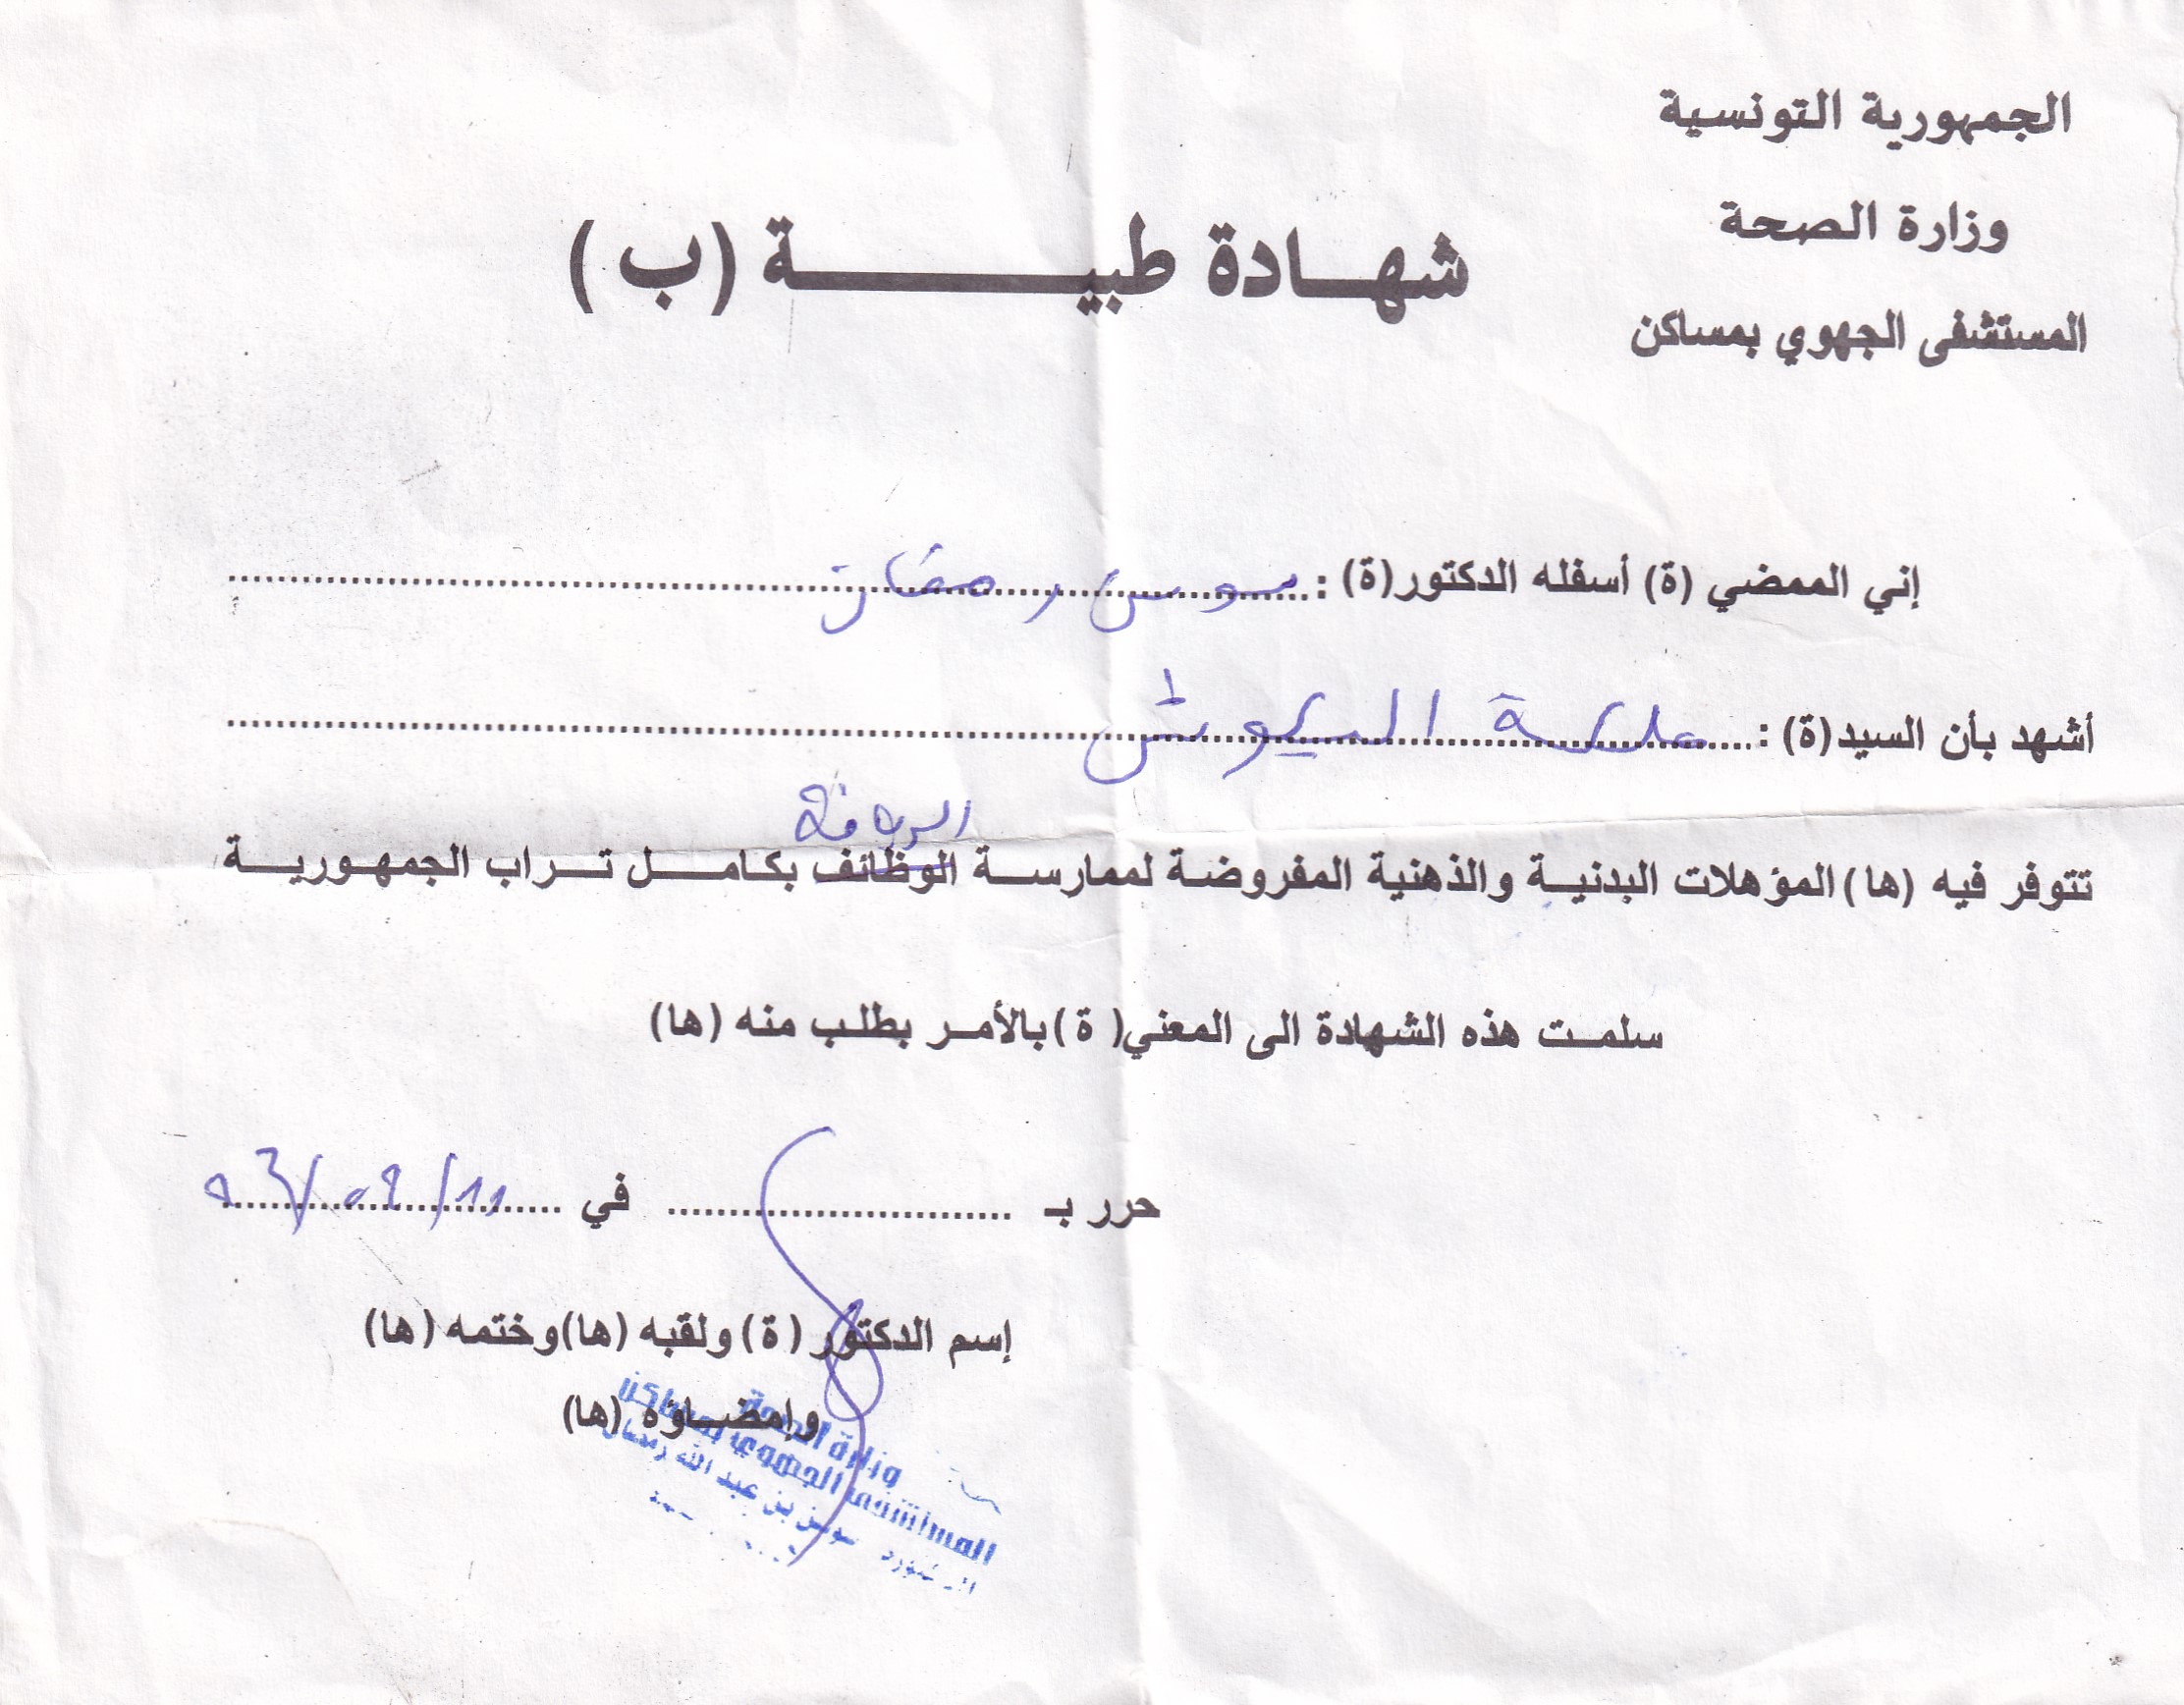 الجمهورية التونسية
وزارة الصحة
شهادة طبية (ب)
المستشفى الجهوي بمساكن
إني الممضي (ة) أسفله الدكتور(ة) : سوسن رمضان
أشهد بأن السيد(ة) : ملكة البكوش
الرياضة
تتوفر فيه (ها) المؤهلات البدنية والذهنية المفروضة لممارسة الوظائف بكامل تراب الجمهورية
سلمت هذه الشهادة الى المعني( ة) بالأمر بطلب منه (ها)
حرر بـ في 03/09/11
إسم الدكتور (ة) ولقبه (ها)وختمه (ها)
وإمضاؤه (ها)
وزارة الصحة
المستشفى الجهوي بمساكن
سوسن بن عبد الله رمضان